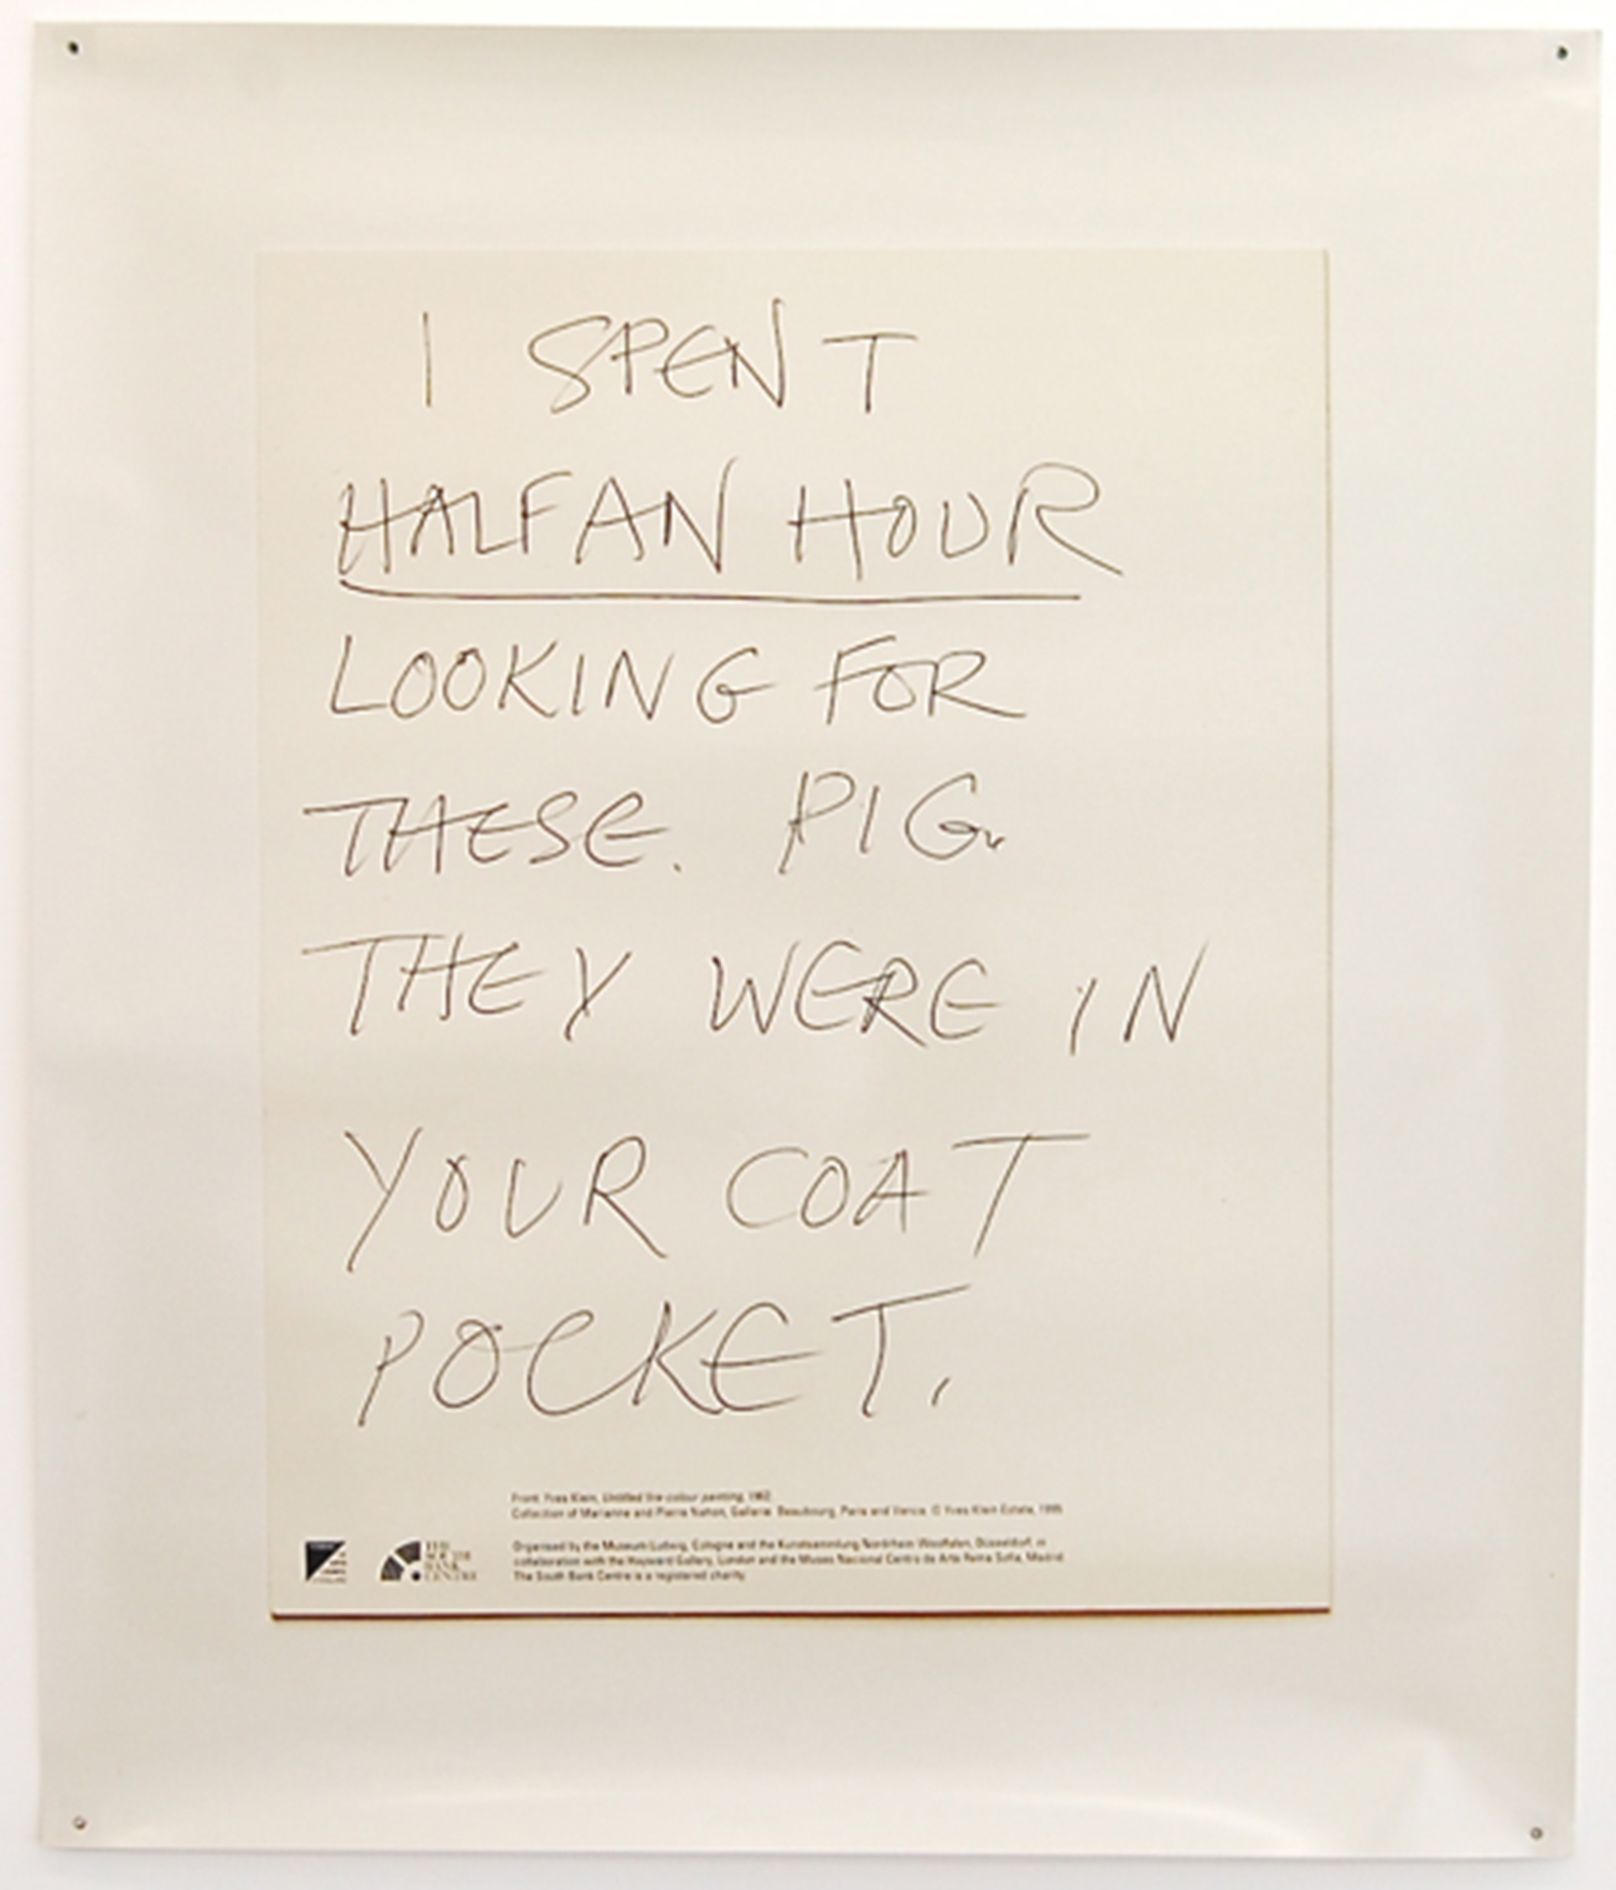 I SPENT
HALF AN HOUR
LOOKING FOR
THESE. PIG.
THEY WERE IN
YOUR COAT
POCKET.
Front: Yves Klein, Untitled fire colour painting, 1962
Collection of Marianne and Pierre Nahon, Gallerie Beaubourg, Paris and Vence. © Yves Klein Estate, 1995
Organised by the Museum Ludwig, Cologne and the Kunstsammlung Nordrhein-Westfalen, Düsseldorf, in
collaboration with the Hayward Gallery, London and the Museo Nacional Centro de Arte Reina Sofia, Madrid.
The South Bank Centre is a registered charity.
THE
SOUTH
BANK
CENTRE